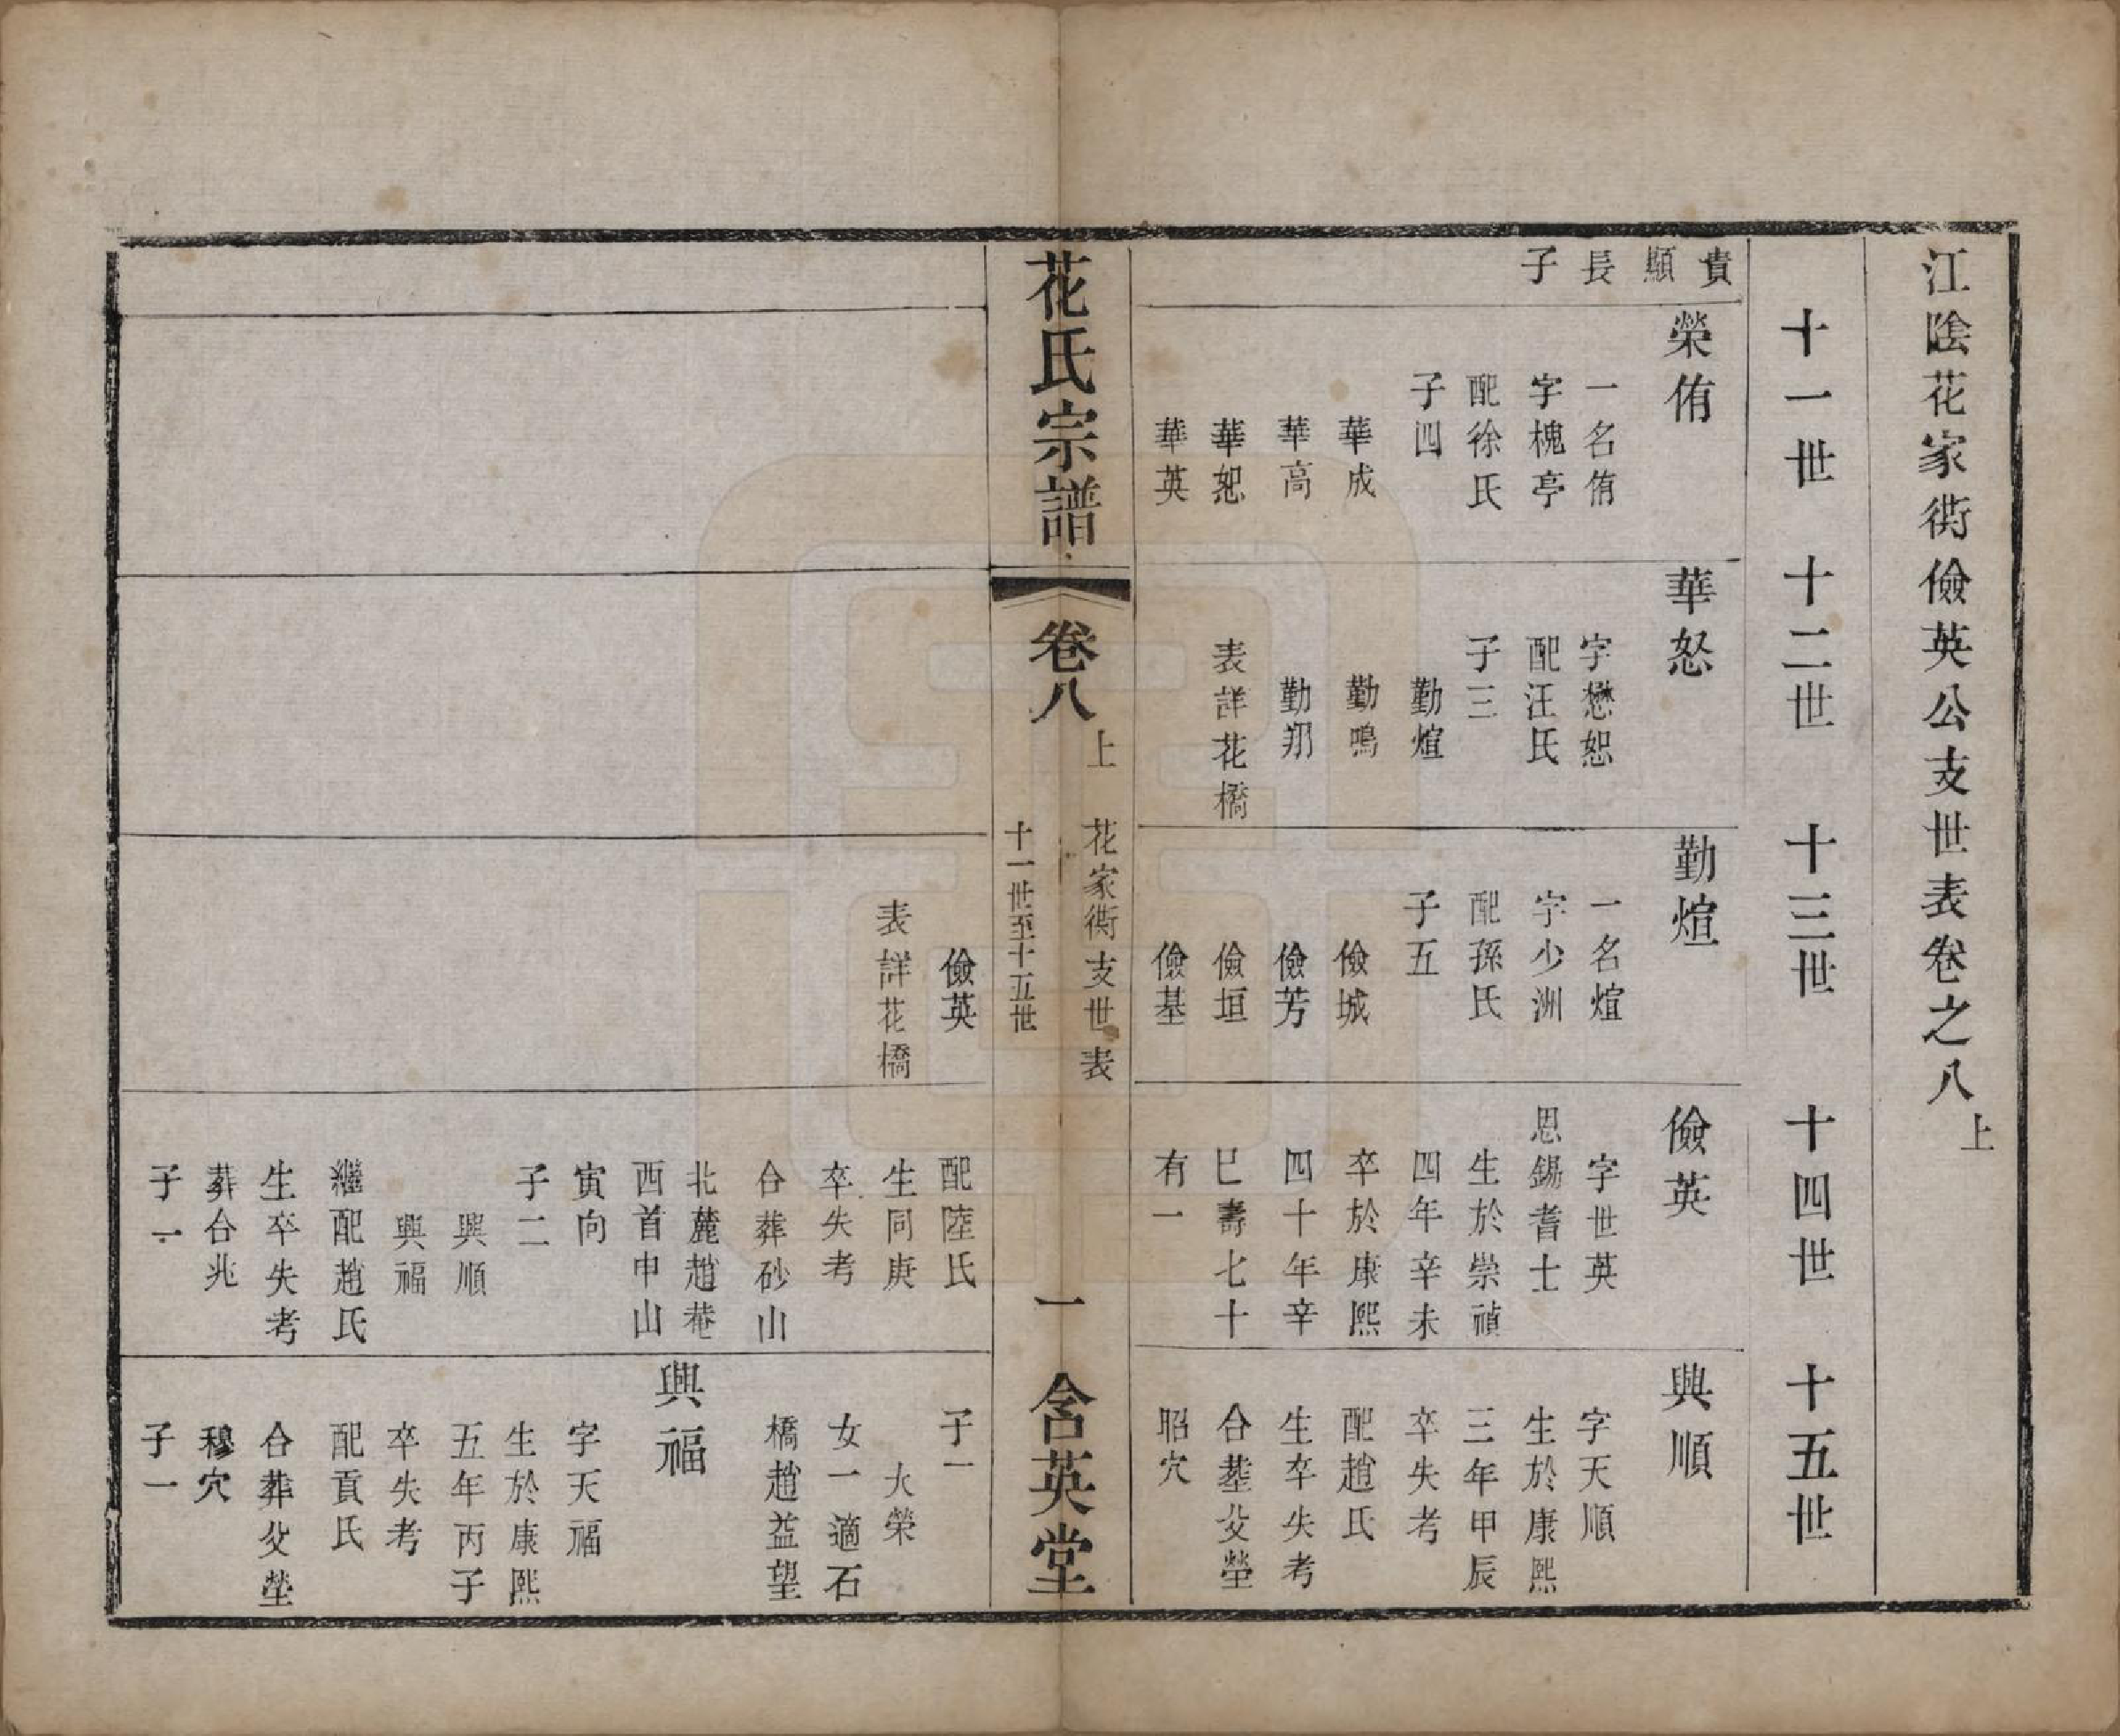 江陰花家衖儉英公支世表卷之八上
十一世 十二世 十三世 十四世 十五世
貴
顯
長
子
榮侑
一名侑
字槐亭
配徐氏
子四
華成
華高
華恕
華英
華恕
字懋恕
配汪氏
子三
勤煊
勤鳴
勤翔
表詳花橋
勤煊
一名煊
字少洲
配孫氏
子五
儉城
儉芳
儉垣
儉基
儉英
表詳花橋
儉英
字世英
恩錫耆士
生於崇禎
四年辛未
卒於康熙
四十年辛
巳壽七十
有一
配陸氏
生同庚
卒失考
合葬砂山
北麓趙菴
西首申山
寅向
子二
興順
興福
繼配趙氏
生卒失考
葬合兆
子一
興順
字天順
生於康熙
三年甲辰
卒失考
配趙氏
生卒失考
合墓父塋
昭穴
子一
大榮
女一適石
橋趙益望
興福
字天福
生於康熙
五年丙子
卒失考
配貢氏
合葬父塋
穆穴
子一
花氏宗譜
卷八上
花家衖支世表
十一世至十五世
一
含英堂